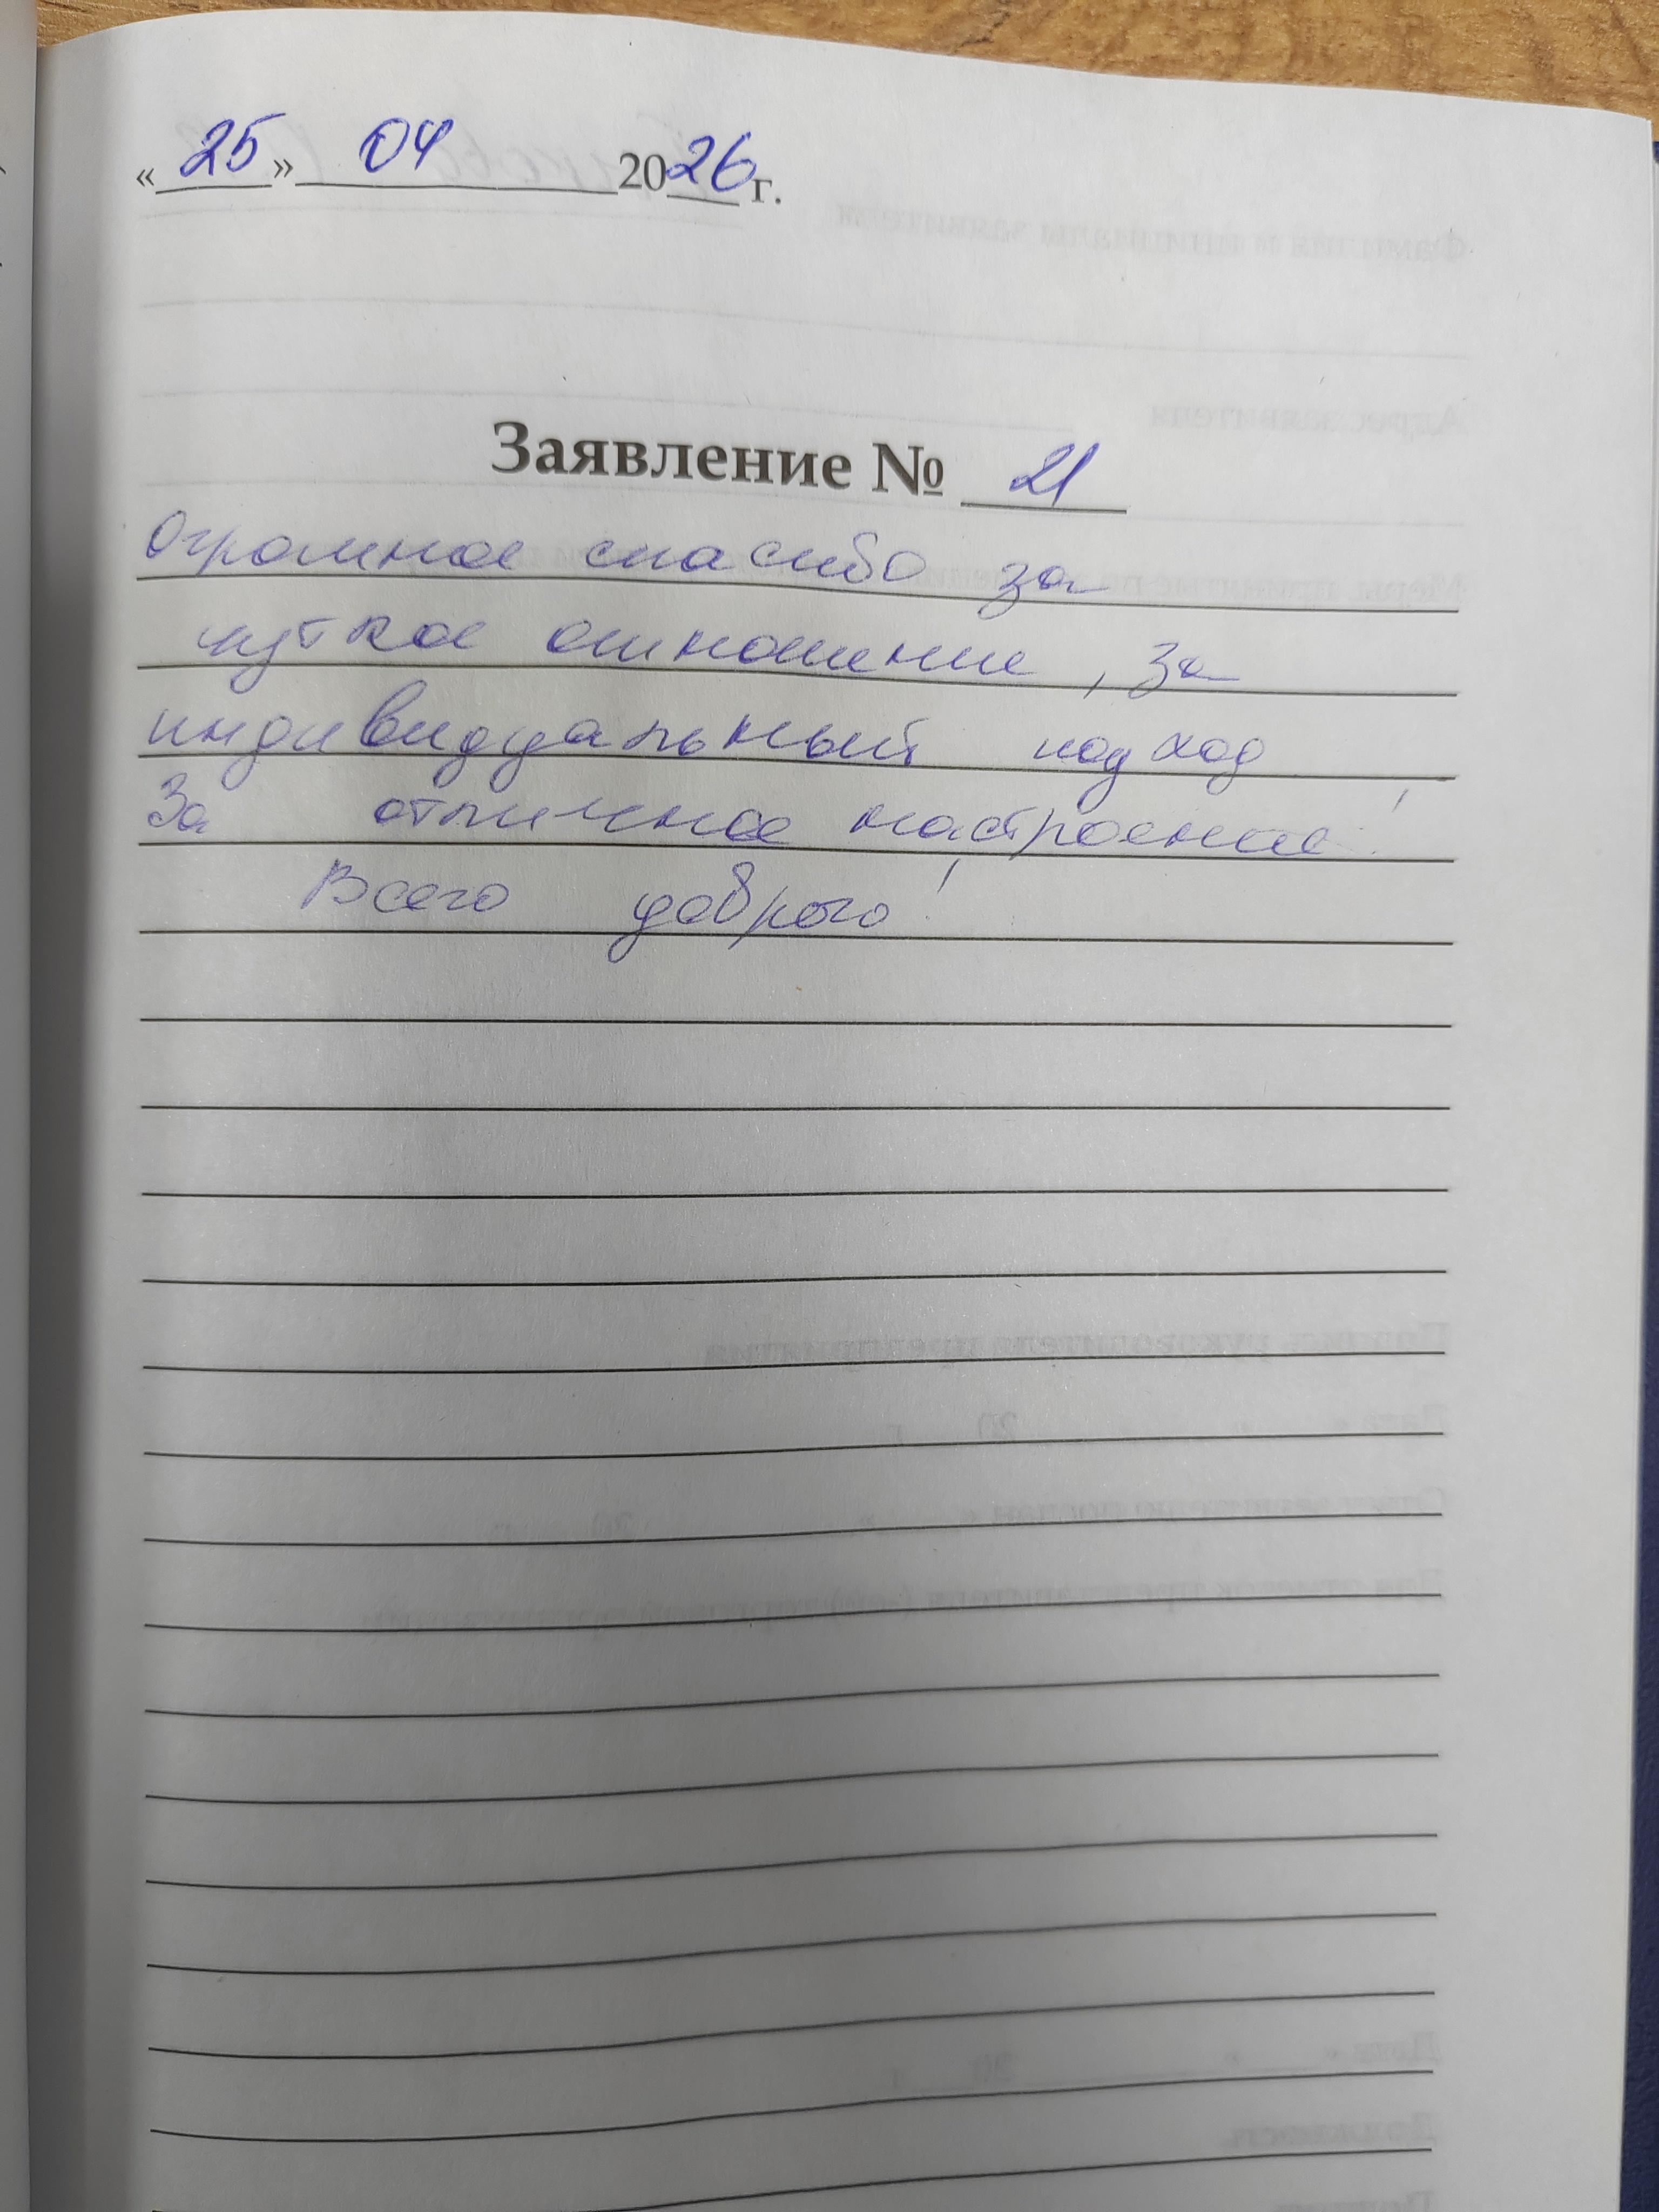 «25» 04 2026 г.
Заявление № 21
Огромное спасибо за
чуткое отношение, за
индивидуальный подход
За отличное настроение!
Всего доброго!